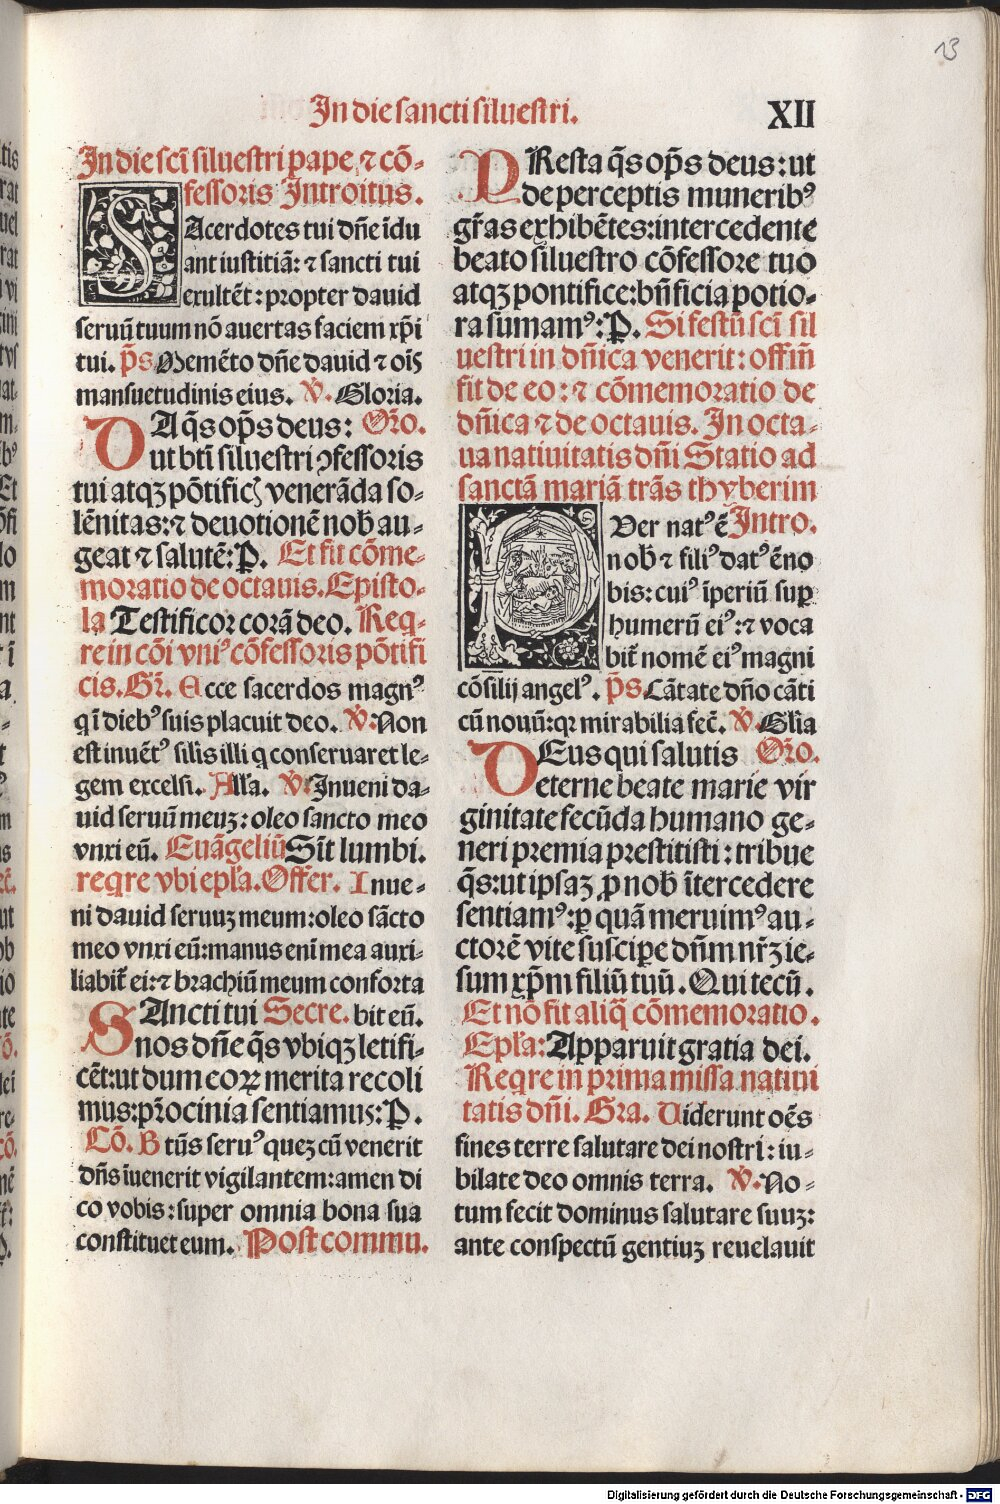 13
In die sancti siluestri.
XII
In die scī siluestri pape ⁊ cō-
fessoris Introitus.
SAcerdotes tui dn̄e īdu
ant iustitiā: ⁊ sancti tui
exultēt: propter dauid
seruū tuum nō auertas faciem xp̄i
tui. p̄s Memēto dn̄e dauid ⁊ oīs
mansuetudinis eius. ℣. Gloria.
DA q̄s op̄s deus: Oro.
ut bt̄i siluestri ꝯfessoris
tui atqꝫ pōtificꝭ venerāda so-
lēnitas: ⁊ deuotionē nob̄ au-
geat ⁊ salutē: P. Et fit cōme-
moratio de octauis. Episto-
la Testificor corā deo. Req-
re in cōi vniꝰ cōfessoris pōtifi
cis. Gr̄. Ecce sacerdos magnꝰ
qī diebꝰ suis placuit deo. ℣. Non
est inuētꝰ silīs illi q conseruaret le-
gem excelsi. Alla. ℣. Inueni da-
uid seruū meuꝫ: oleo sancto meo
vnxi eū. Euāgeliū Sīt lumbi.
reqre vbi epl̄a. Offer. Inue-
ni dauid seruuꝫ meum: oleo sācto
meo vnxi eū: manus enī mea auxi-
liabit̄ ei: ⁊ brachiū meum conforta
SAncti tui Secre. bit eū.
nos dn̄e q̄s vbiqꝫ letifi-
cēt: ut dum eoꝝ merita recoli
mus: pr̄ocinia sentiamus: P.
Cō. Btūs seruꝰ quez cū venerit
dn̄s īuenerit vigilantem: amen di
co vobis: super omnia bona sua
constituet eum. Post commu.
PResta q̄s op̄s deus: ut
de perceptis muneribꝰ
gr̄as exhibētes: intercedente
beato siluestro cōfessore tuo
atqꝫ pontifice: bn̄ficia potio-
ra sumamꝰ: P. Si festū scī sil
uestri in dn̄ica venerit: offīm̄
fit de eo: ⁊ cōmemoratio de
dn̄ica ⁊ de octauis. In octa-
ua natiuitatis dn̄i Statio ad
sanctā mariā trās thyberim
PVer natꝰ ē Intro.
nob̄ ⁊ filiꝰ datꝰ ē no
bis: cuiꝰ īperiū suꝑ
humerū eiꝰ: ⁊ voca
bit̄ nomē eiꝰ magni
cōsilij angelꝰ. p̄s. Cātate dn̄o cāti
cū nouū: qꝛ mirabilia fec̄. ℣. Gl̄ia
DEus qui salutis Oro.
eterne beate marie vir
ginitate fecūda humano ge-
neri premia prestitisti: tribue
q̄s: ut ipsaꝫ ꝓ nob̄ ītercedere
sentiamꝰ: ꝑ quā meruimꝰ au-
ctorē vite suscipe dn̄m nr̄ꝫ ie-
sum xp̄m filiū tuū. Qui tecū.
Et nō fit aliq̄ cōmemoratio.
Epl̄a: Apparuit gratia dei.
Reqre in prima missa natiui
tatis dn̄i. Gra. Viderunt oēs
fines terre salutare dei nostri: iu-
bilate deo omnis terra. ℣. No-
tum fecit dominus salutare suuꝫ:
ante conspectū gentiuꝫ reuelauit
Digitalisierung gefördert durch die Deutsche Forschungsgemeinschaft - DFG